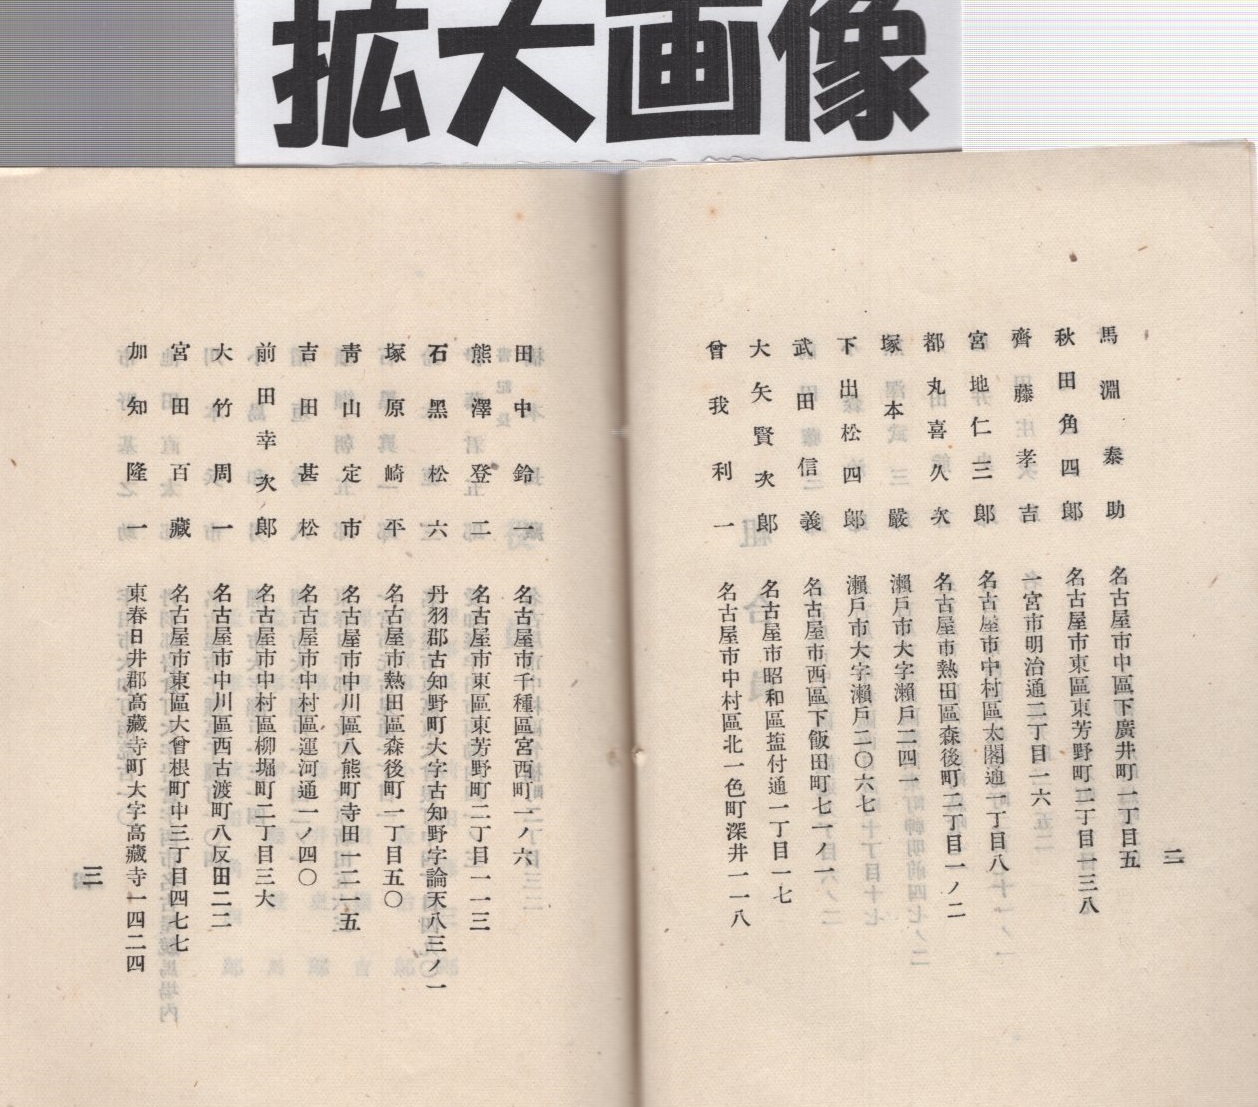 拡大画像
馬淵泰助 名古屋市中區下廣井町一丁目五
秋田角四郎 名古屋市東區東芳野町二丁目一三八
齊藤孝吉 一宮市明治通二丁目二六
宮地仁三郎 名古屋市中村區太閤通一丁目八
都丸喜久次 名古屋市熱田區森後町二丁目一ノ二
塚本嚴 瀨戸市大字瀨戸二四一
下出松四郎 瀨戸市大字瀨戸二〇六七
武田信義 名古屋市西區下飯田町七一ノ一
大矢賢次郎 名古屋市昭和區塩付通一丁目一七
曾我利一 名古屋市中村區北一色町深井一一八
二
田中鈴一 名古屋市千種區宮西町一ノ六
熊澤登二 名古屋市東區東芳野町二丁目一一三
石黑松六 丹羽郡古知野町大字古知野字論天八三ノ一
塚原崎平 名古屋市熱田區森後町一丁目五〇
靑山定市 名古屋市中川區八熊町寺田一二一五
吉田甚松 名古屋市中村區運河通一ノ四〇
前田幸次郎 名古屋市中村區柳堀町二丁目三大
大竹周一 名古屋市中川區西古渡町八反田二二
宮田百藏 名古屋市東區大曾根町中三丁目四七七
加知隆一 東春日井郡高藏寺町大字高藏寺一四二四
三